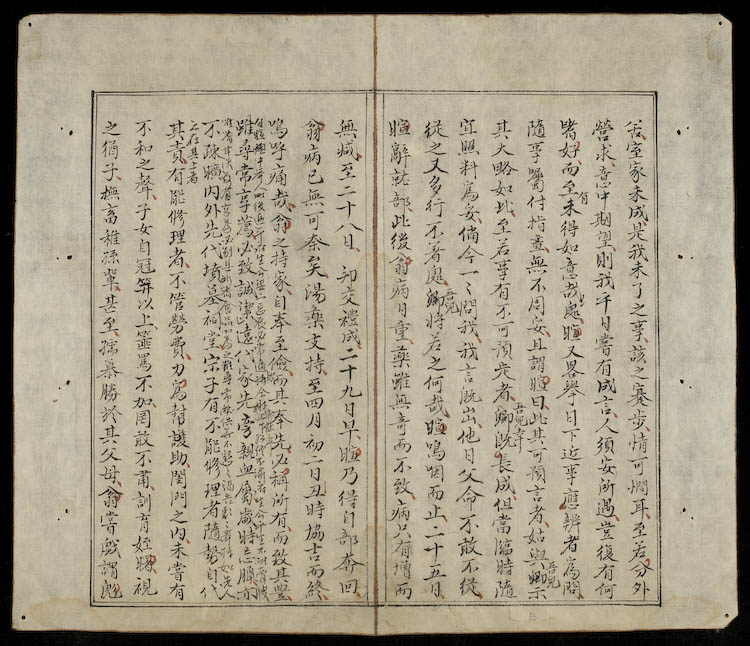 舌室家未成是我未了之事該之蹇步情可憫耳至若分外
營求意中期望則我平日嘗有成言人須安所遇豈復有何
皆好而至未有得如意哉處暄又畧擧目下近事應辦者爲問
隨事囑付指畫無不周妥且謂暄曰此其可預言者姑與卿吾兒示
其大略如此至若事有不可預度者卿吾兒幸旣長成但當臨時隨
宜照料爲妥倘今一一問我我言旣出他日父命不敢不從
從之又多行不着處卿吾兒將若之何哉暄嗚咽而止二十五日
暄辭就部此後翁病日重藥雖無奇而不致病只有增而
無減至二十八日卯交禮成二十九日早暄乃得自部奔回
翁病已無可奈矣湯藥支持至四月初二日丑時協吉而終
嗚呼痛哉翁之持家自奉至儉而其奉先必稱所有而致其豐
雖尋常享薦必致誠潔遠代家先旁親血屬歲時忌臘亦
不疎曠內外先代墳墓祠堂宗子有不能修理者隨勢自代
其責有能修理者不管勞費力爲幫護助閨門之內未嘗有
不和之聲子女自冠笄以上箠罵不加罔敢不肅訓育姪甥視
之猶子撫畜稚孫輩甚至孺慕勝於其父母翁嘗戲謂彪